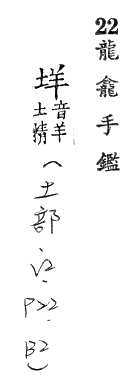 22龍龕手鑑
垟音羊土精(土部·v2·P22·B2)